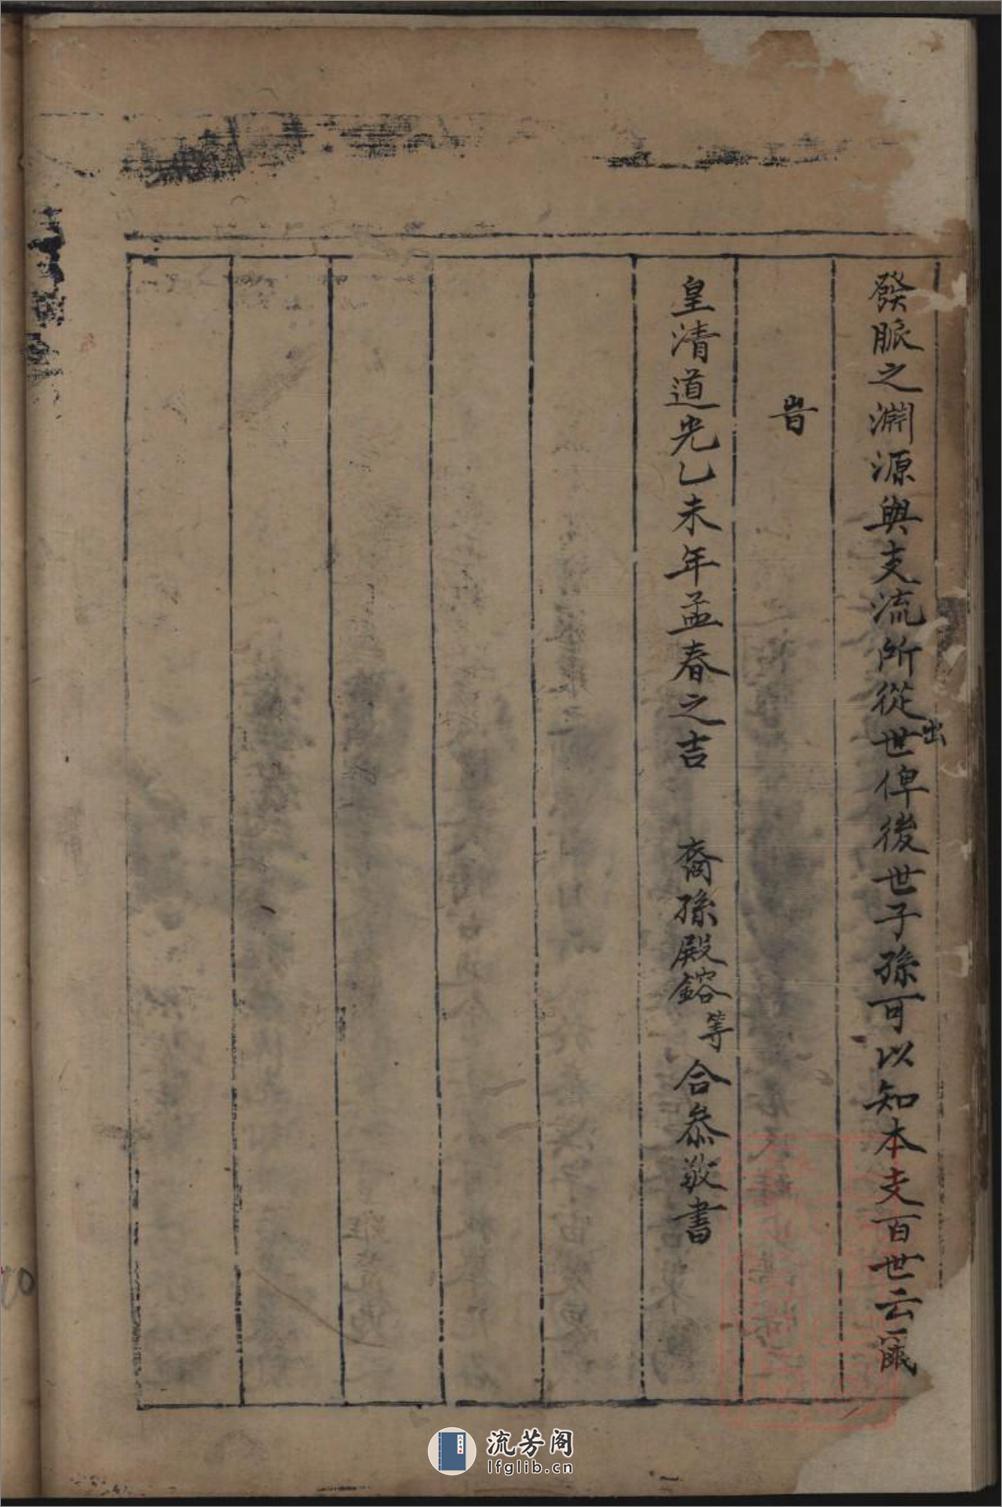 發脈之淵源與支流所從出世俾後世子孫可以知本支百世云爾
旹
皇清道光乙未年孟春之吉 裔孫殿鎔等合叅敬書
流芳阁
lfglib.cn